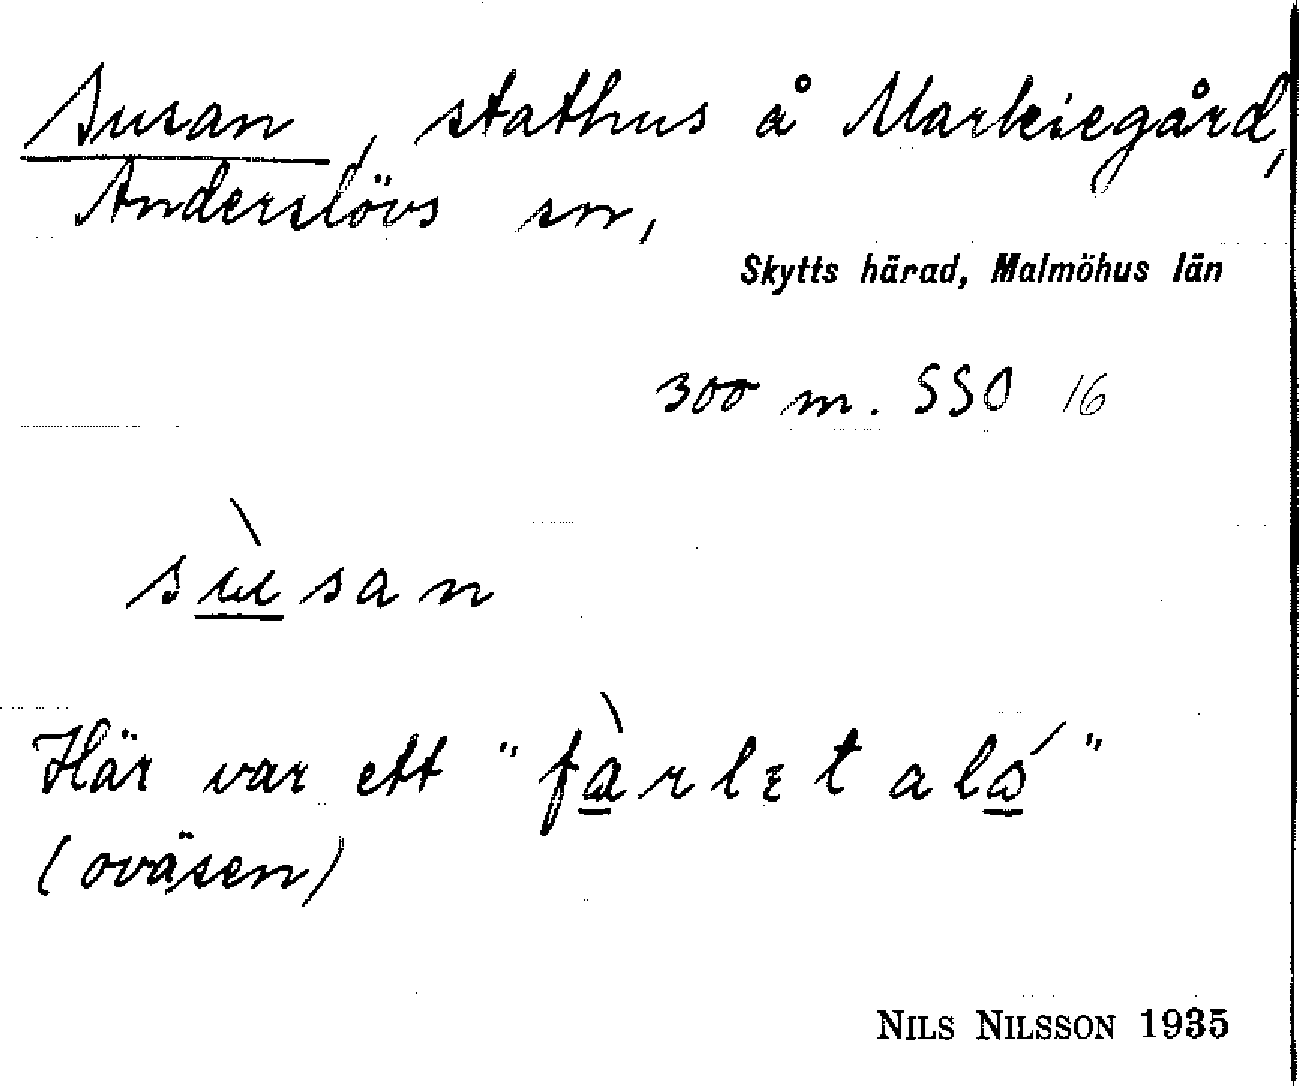 Susan, stathus å Markiegård,
Anderslövs sn,
Skytts härad, Malmöhus län
300 m. SSO 16
sùsan
Här var ett "fàrlɛt aló"
(oväsen)
NILS NILSSON 1935